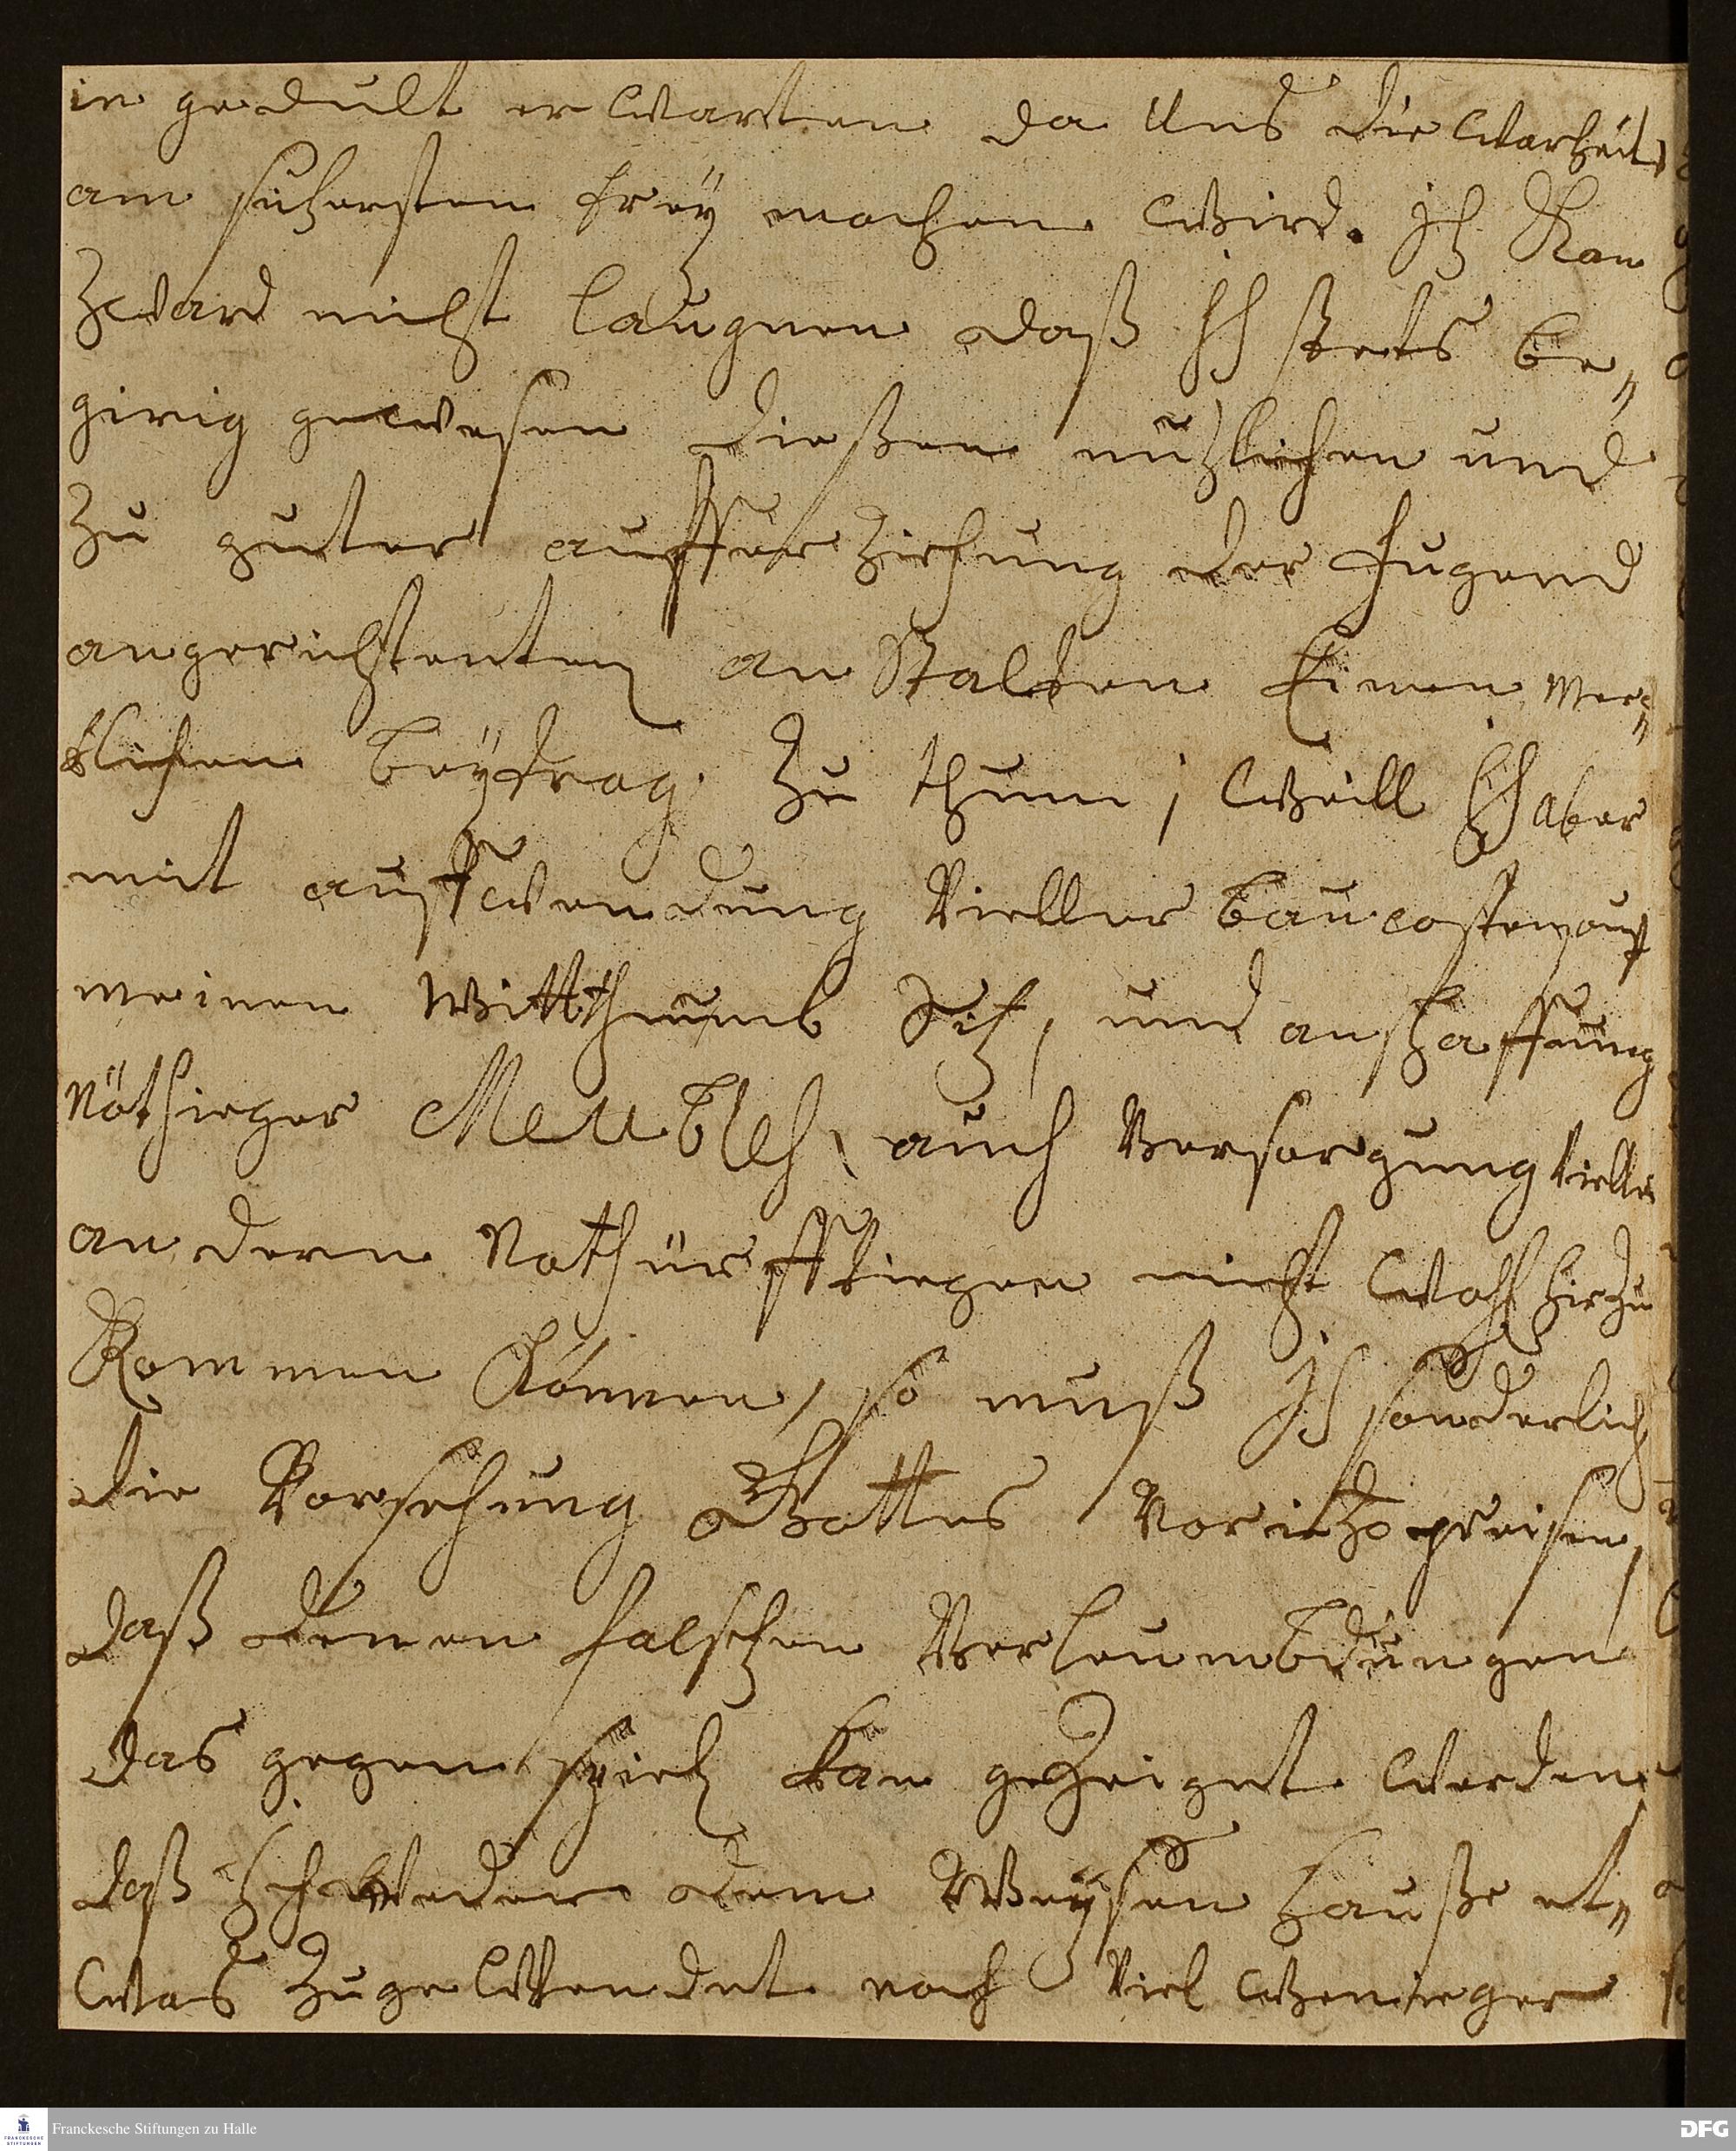 in gedult erwarten da Uns die warheit
am sichersten frey machen wird. Ich Kan
Zward nicht laügnen daß Ich stets be„
girig gewesen dießen nützlichen und
Zu guter aufferziehung der Jugend
angerichtenten anstalten Einen merc„
klichen beÿtrag zu thun, weill Ich aber
mit auffwendung vieller baucosten auf
meinen Wittthumb Sitz, und anschaffung
nöthieger Meubles, auch versorgung vieller
andern Nothürfftiegen nicht wohl hirzu
Kommen Können, so muß Ich sonderlich
die Vorsehung Gottes vor ietzo preisen,
daß denen falschen Verleumbdungen
das gegenspiel kan gezeiget werden
daß Ich weder dem Weÿsenhauße et„
was zugewendet noch viel wenieger
Franckesche Stiftungen zu Halle
DFG